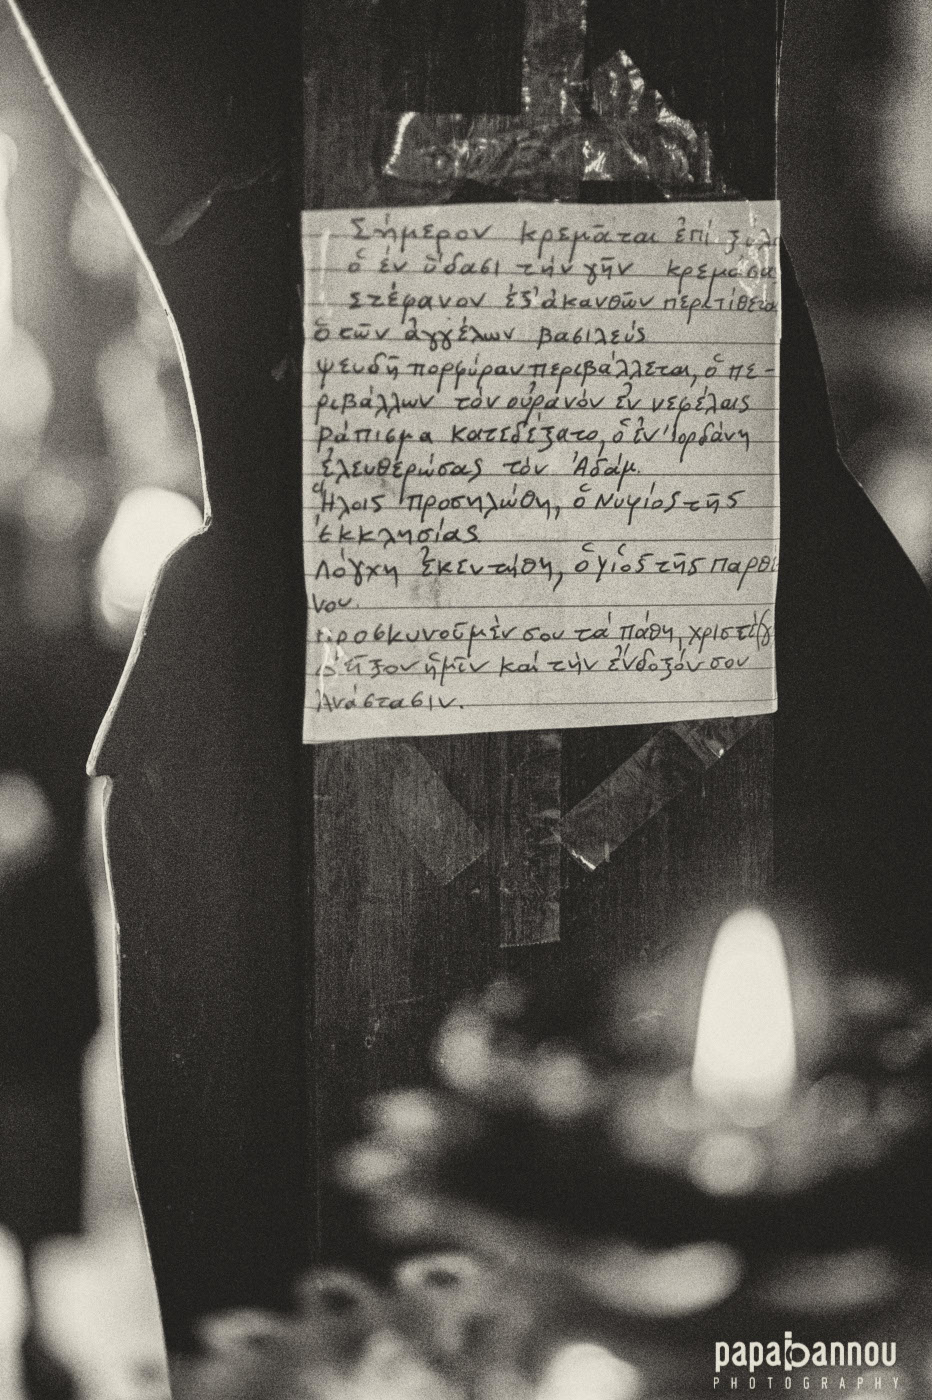 Σήμερον κρεμᾶται ἐπὶ ξύλ
ὁ ἐν ὕδασι τὴν γῆν κρεμάσα
Στέφανον ἐξ ἀκανθῶν περιτίθετα
ὁ τῶν ἀγγέλων βασιλεύς
ψευδῆ πορφύραν περιβάλλεται, ὁ πε-
ριβάλλων τὸν οὐρανόν ἐν νεφέλαις
Ράπισμα κατεδέξατο, ὁ ἐν Ἰορδάνῃ
ἐλευθερώσας τὸν Ἀδάμ.
Ἥλοις προσηλώθη, ὁ Νυμφίος τῆς
Ἐκκλησίας
Λόγχη ἐκεντήθη, ὁ υἱός τῆς Παρθέ
νου.
προσκυνοῦμέν σου τά πάθη, χριστέ
δεῖξον ἡμῖν καί τὴν ἔνδοξόν σου
Ἀνάστασιν.
papaioannou
PHOTOGRAPHY